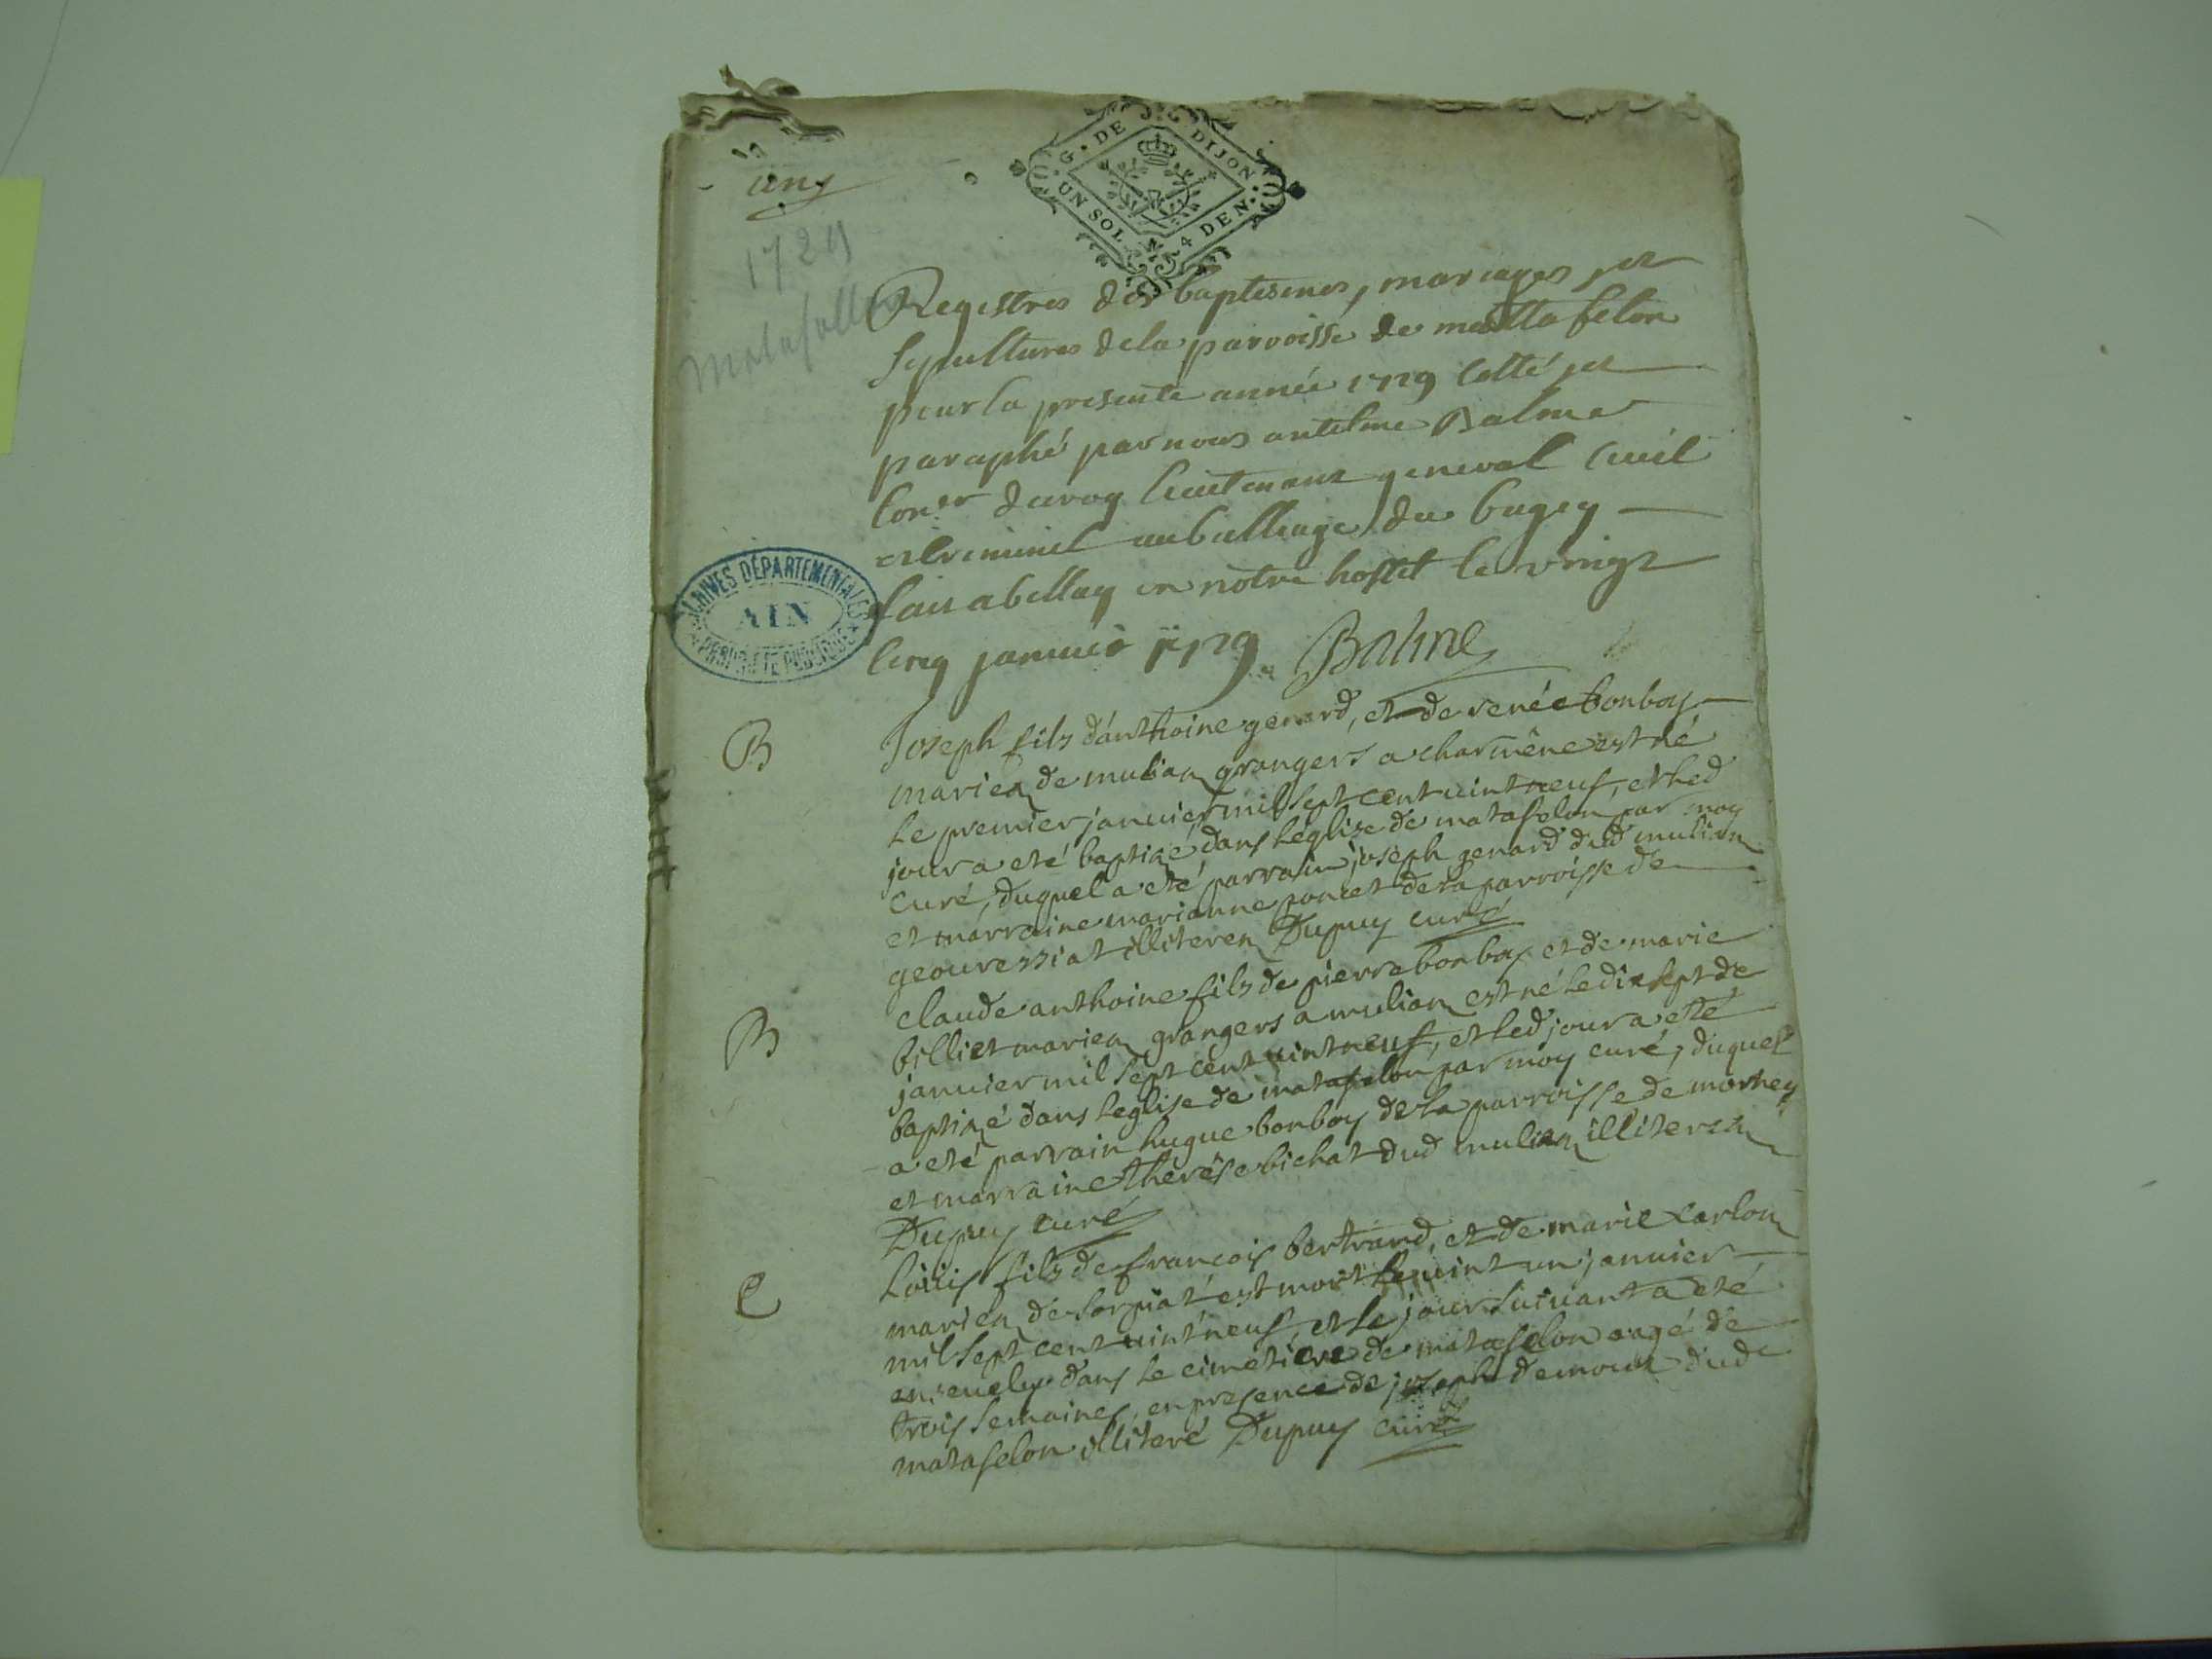 G. DE DIJON
UN SOL 4 DEN.
1729
Matafellon
Registres des baptesmes, mariages, et
sepultures dela parroisse de mattafelon
pour la presente année 1729 cotté et
paraphé par nous antelme Balme
Coner du roy lieutenant general Civil
et criminel au balliage du bugey
fait a bellay en notre hostel le vingt
cinq janvier 1729 Balme
ARCHIVES DÉPARTEMENTALES
AIN
PROPRIÉTÉ PUBLIQUE
B
Joseph fils d'anthoine genard, et de renée bonboy
mariez de mulian grangers a charmêne est né
le premier janvier mil sept cent vint neuf, et led
jour a eté baptizé dans léglize de matafelon par moy
curé, duquel a eté parrain joseph genard dud mulian
et marraine marianne poncet de la parroisse de
geouressiat illiterez Dupuy curé
B
claude anthoine fils de pierre bonboy et de marie
billiet mariez grangers a mulian est né le dix sept de
janvier mil sept cent vint neuf, et led jour a esté
baptizé dans leglise de matafelon par moy curé, duquel
a eté parrain hugue bonboy de la parroisse de mornay
et marraine thérèse bichat dud mulian illiterez
Dupuy curé
E
Loüis fils de françois bertrand, et de marie carlon
mariez de Corpiat est mort le vint un janvier
mil sept cent vint neuf, et le jour suivant a eté
ensevely dans le cimetiere de matafelon aagé de
trois semaines, en presence de joseph demoux dud
matafelon illiteré Dupuy curé